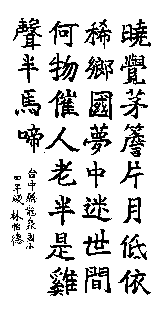 曉覺茅簷片月低依
稀鄉國夢中迷世間
何物催人老半是雞
聲半馬啼
台中縣龍泉國小
四年級 林怡德